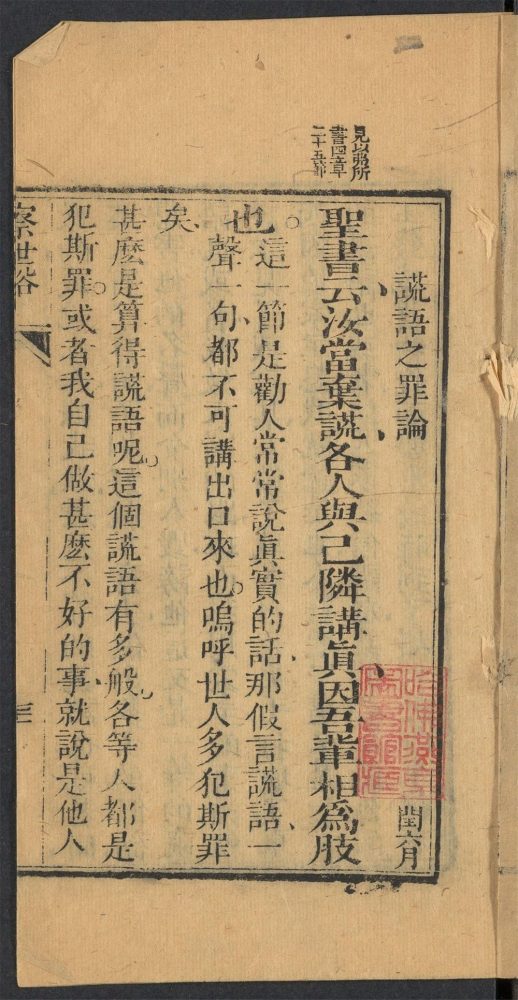 見以弗所
書四章
二十五節
謊語之罪論
閏六月
聖書云汝當棄謊各人與己隣講眞因吾輩相爲肢
也
這一節是勸人常常說眞實的話、那假言謊語、一
聲一句都不可講出口來也。嗚呼世人多犯斯罪
矣
甚麽是算得謊語呢。這個謊語有多般。各等人都是
犯斯罪。或者我自己做甚麽不好的事、就說是他人
察世俗